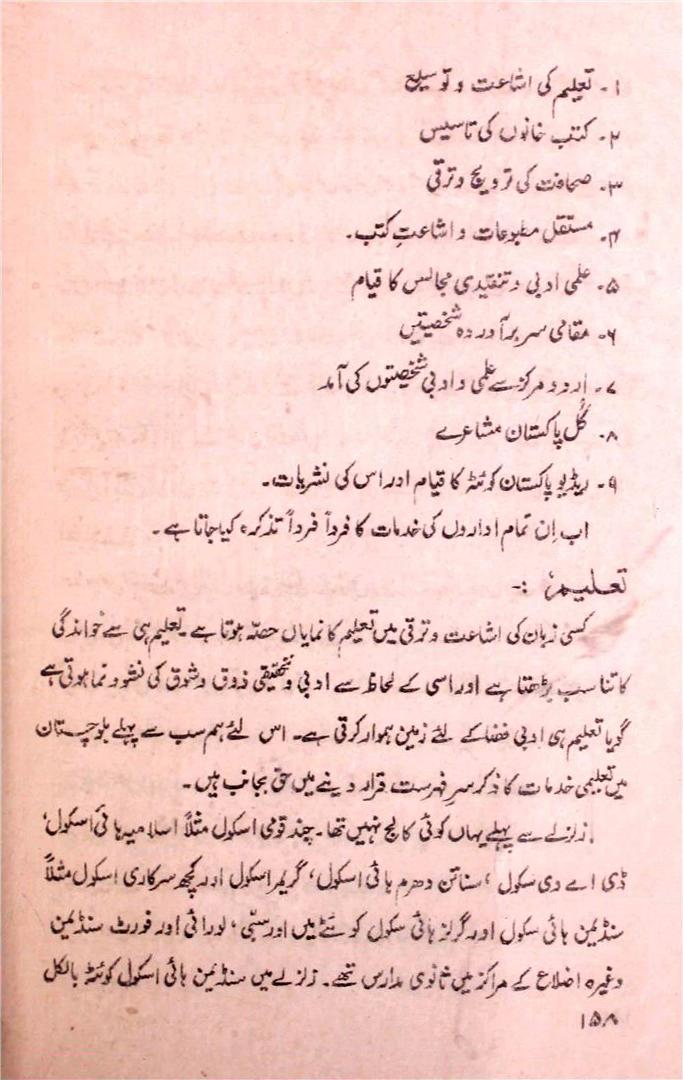 ۱۔ تعلیم کی اشاعت و توسیع
۲۔ کتب خانوں کی تاسیس
۳۔ صحافت کی ترویج و ترقی
۴۔ مستقل مطبوعات و اشاعتِ کتب۔
۵۔ علمی ادبی و تنقیدی مجالس کا قیام
۶۔ مقامی سربرآوردہ شخصیتیں
۷۔ اردو مرکز سے علمی و ادبی شخصیتوں کی آمد
۸۔ کُل پاکستان مشاعرے
۹۔ ریڈیو پاکستان کوئٹہ کا قیام اور اس کی نشریات۔
اب اِن تمام اداروں کی خدمات کا فرداً فرداً تذکرہ کیا جاتا ہے۔
تعلیم :-
کسی زبان کی اشاعت و ترقی میں تعلیم کا نمایاں حصہ ہوتا ہے۔ تعلیم ہی سے خواندگی
کا تناسب بڑھتا ہے اور اسی کے لحاظ سے ادبی و تحقیقی ذوق و شوق کی نشوونما ہوتی ہے
گویا تعلیم ہی ادبی فضا کے لئے زمین ہموار کرتی ہے۔ اس لئے ہم سب سے پہلے بلوچستان
میں تعلیمی خدمات کا ذکر سرِ فہرست قرار دینے میں حق بجانب ہیں۔
زلزلے سے پہلے یہاں کوئی کالج نہیں تھا۔ چند قومی اسکول مثلاً اسلامیہ ہائی اسکول،
ڈی اے وی سکول، سناتن دھرم ہائی اسکول، گریمر اسکول اور کچھ سرکاری اسکول مثلاً
سنڈیمن ہائی سکول اور گرلز ہائی سکول کوئٹے میں اور سبّی، لورائی اور فورٹ سنڈیمن
وغیرہ اضلاع کے مراکز میں ثانوی مدارس تھے۔ زلزلے میں سنڈیمن ہائی اسکول کوئٹہ بالکل
۱۵۸